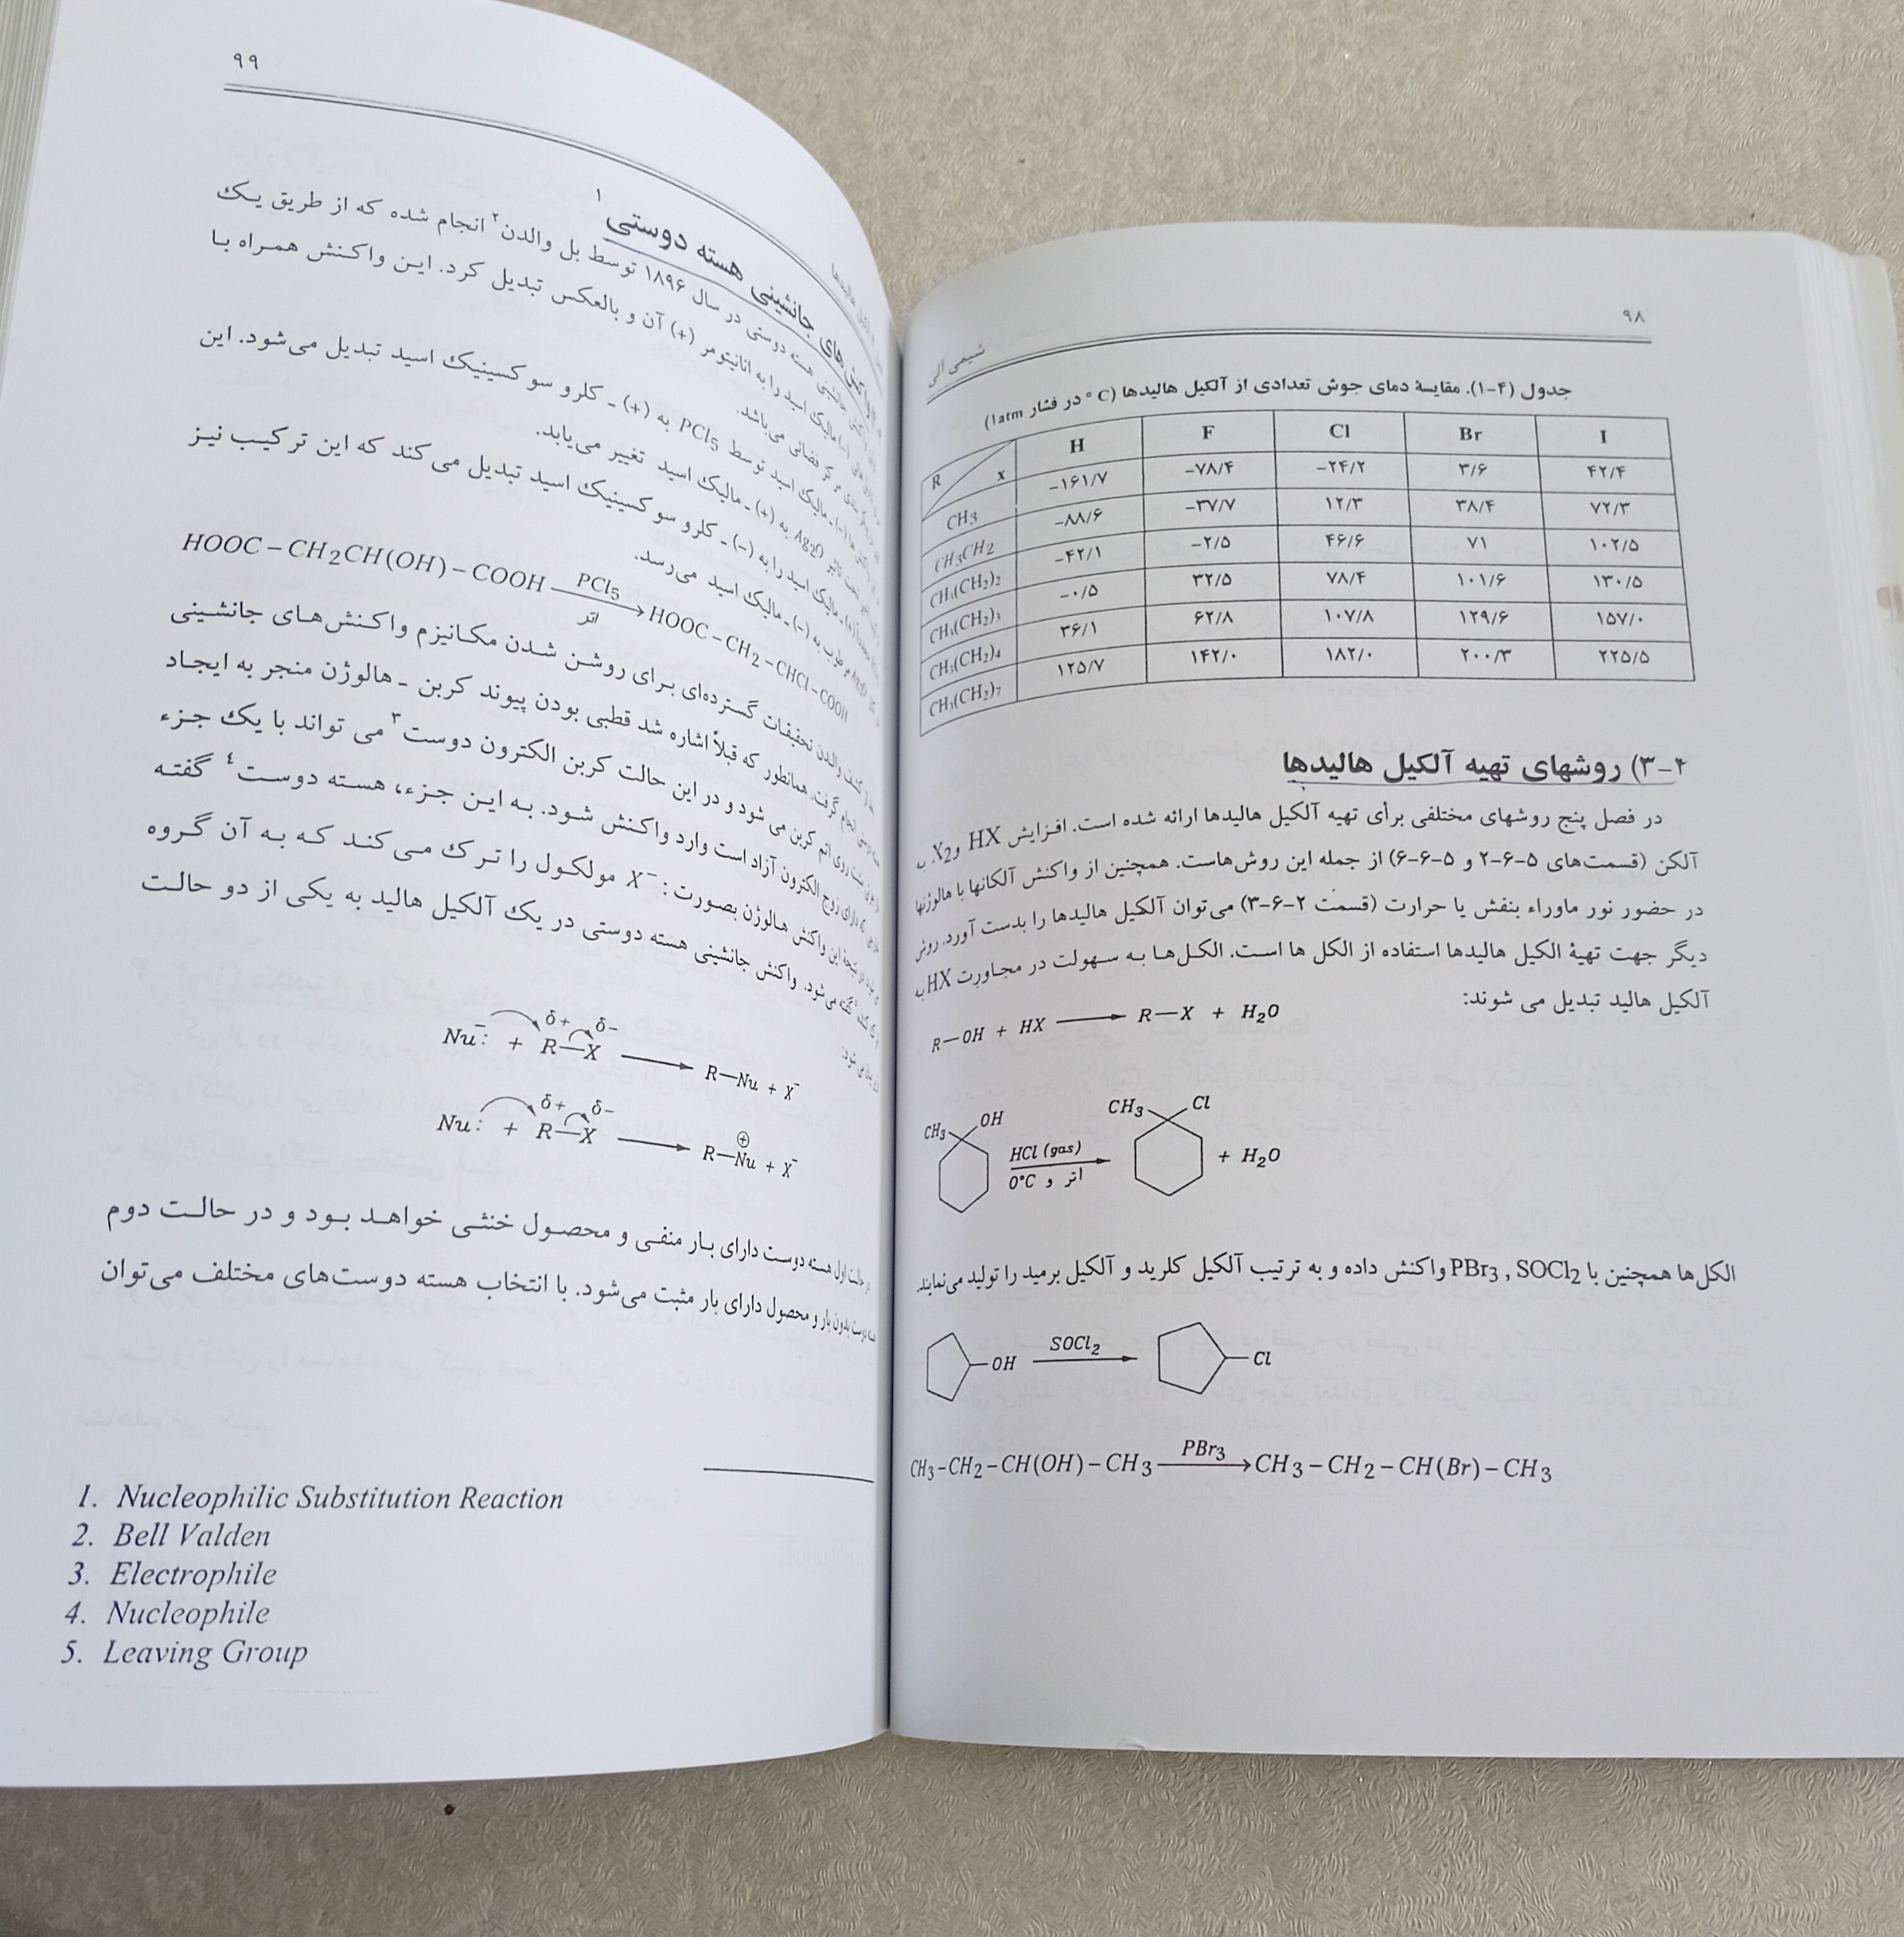 ۹۸
شیمی آلی
جدول (۴-۱). مقایسهٔ دمای جوش تعدادی از آلکیل هالیدها (C ° در فشار 1atm)
R x H F Cl Br I
CH3 -۱۶۱/۷ -۷۸/۴ -۲۴/۲ ۳/۶ ۴۲/۴
CH3CH2 -۸۸/۶ -۳۷/۷ ۱۲/۳ ۳۸/۴ ۷۲/۳
CH3(CH2)2 -۴۲/۱ -۲/۵ ۴۶/۶ ۷۱ ۱۰۲/۵
CH3(CH2)3 -۰/۵ ۳۲/۵ ۷۸/۴ ۱۰۱/۶ ۱۳۰/۵
CH3(CH2)4 ۳۶/۱ ۶۲/۸ ۱۰۷/۸ ۱۲۹/۶ ۱۵۷/۰
CH3(CH2)7 ۱۲۵/۷ ۱۴۲/۰ ۱۸۲/۰ ۲۰۰/۳ ۲۲۵/۵
۴-۳) روشهای تهیه آلکیل هالیدها
در فصل پنج روشهای مختلفی برای تهیه آلکیل هالیدها ارائه شده است. افزایش HX و X2
آلکن (قسمت‌های ۵-۶-۲ و ۵-۶-۶) از جمله این روش‌هاست. همچنین از واکنش آلکانها با هالوژنها
در حضور نور ماوراء بنفش یا حرارت (قسمت ۲-۶-۳) می‌توان آلکیل هالیدها را بدست آورد. روش
دیگر جهت تهیهٔ الکیل هالیدها استفاده از الکل ها است. الکل‌ها به سهولت در مجاورت HX
آلکیل هالید تبدیل می شوند:
R—OH + HX ⟶ R—X + H2O
CH3 OH HCl (gas) اتر و 0°C CH3 Cl + H2O
الکل‌ها همچنین با PBr3 , SOCl2 واکنش داده و به ترتیب آلکیل کلرید و آلکیل برمید را تولید می‌نمایند.
OH SOCl2 Cl
CH3-CH2-CH(OH)-CH3 PBr3 ⟶ CH3-CH2-CH(Br)-CH3
۹۹
جانشینی هسته دوستی ۱
جانشینی هسته دوستی در سال ۱۸۹۶ توسط بل والدن۲ انجام شده که از طریق یک
مالیک اسید را به انانتیومر (+) آن و بالعکس تبدیل کرد. این واکنش همراه با
فضائی می‌باشد.
(-) ـ مالیک اسید توسط PCl5 به (+) ـ کلرو سوکسینیک اسید تبدیل می‌شود. این
تحت تاثیر Ag2O به (+) ـ مالیک اسید تغییر می‌یابد.
(+) ـ مالیک اسید را به (-) ـ کلرو سوکسینیک اسید تبدیل می‌کند که این ترکیب نیز
به (-) ـ مالیک اسید می‌رسد.
HOOC – CH2CH(OH) – COOH PCl5 اتر ⟶ HOOC – CH2 – CHCl – COOH
والدن تحقیقات گسترده‌ای برای روشن شدن مکانیزم واکنش‌های جانشینی
انجام گرفت. همانطور که قبلاً اشاره شد قطبی بودن پیوند کربن ـ هالوژن منجر به ایجاد
روی اتم کربن می شود و در این حالت کربن الکترون دوست۳ می تواند با یک جزء
دارای زوج الکترون آزاد است وارد واکنش شود. به این جزء، هسته دوست۴ گفته
این واکنش هالوژن بصورت :X⁻ مولکول را ترک می‌کند که به آن گروه
گفته می‌شود. واکنش جانشینی هسته دوستی در یک آلکیل هالید به یکی از دو حالت
Nu:⁻ + R—X δ+ δ- ⟶ R—Nu + X⁻
Nu: + R—X δ+ δ- ⟶ R—Nu ⊕ + X⁻
حالت اول هسته دوست دارای بار منفی و محصول خنثی خواهد بود و در حالت دوم
دوست بدون بار و محصول دارای بار مثبت می‌شود. با انتخاب هسته دوست‌های مختلف می‌توان
1. Nucleophilic Substitution Reaction
2. Bell Valden
3. Electrophile
4. Nucleophile
5. Leaving Group